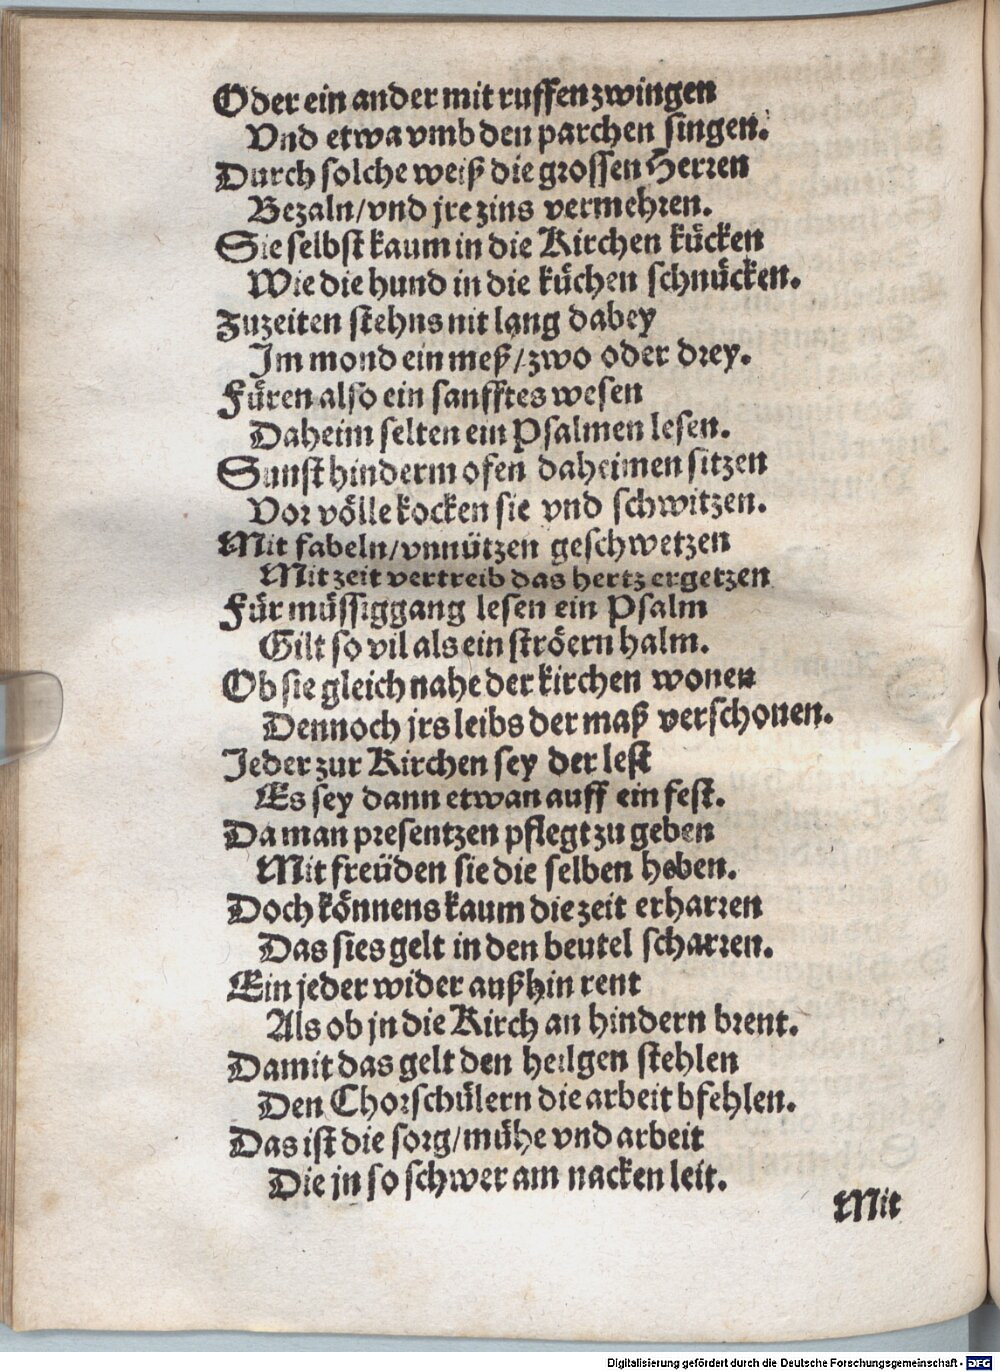 Oder ein ander mit ruffen zwingen
Vnd etwa vmb den parchen singen.
Durch solche weiß die grossen Herren
Bezaln/vnd jre zins vermehren.
Sie selbst kaum in die Kirchen kücken
Wie die hund in die küchen schnücken.
Zuzeiten stehns nit lang dabey
Im mond ein meß/zwo oder drey.
Füren also ein sanfftes wesen
Daheim selten ein Psalmen lesen.
Sunst hinderm ofen daheimen sitzen
Vor völle kocken sie vnd schwitzen.
Mit fabeln/vnnützen geschwetzen
Mit zeit vertreib das hertz ergetzen
Für müssiggang lesen ein Psalm
Gilt so vil als ein ströern halm.
Ob sie gleich nahe der kirchen wonen
Dennoch jrs leibs der maß verschonen.
Jeder zur Kirchen sey der lest
Es sey dann etwan auff ein fest.
Da man presentzen pflegt zu geben
Mit freüden sie die selben heben.
Doch könnens kaum die zeit erharren
Das sies gelt in den beutel scharren.
Ein jeder wider außhin rent
Als ob jn die Kirch an hindern brent.
Damit das gelt den heilgen stehlen
Den Chorschülern die arbeit bfehlen.
Das ist die sorg/mühe vnd arbeit
Die jn so schwer am nacken leit.
Mit
Digitalisierung gefördert durch die Deutsche Forschungsgemeinschaft - DFG